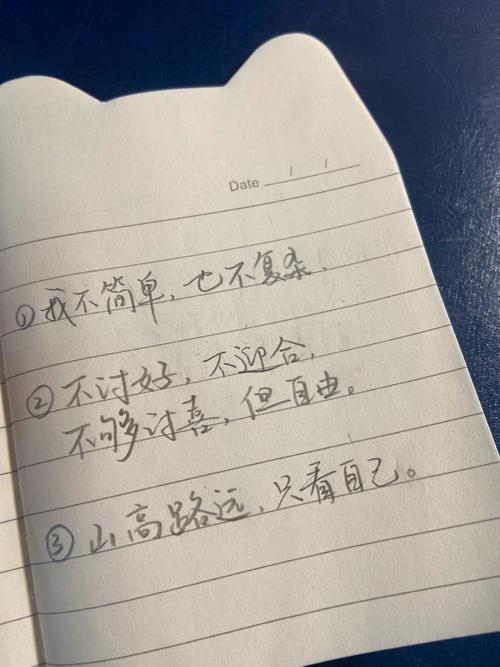 Date / /
①我不简单，也不复杂.
②不讨好，不迎合，
不够讨喜，但自由。
③山高路远，只看自己。